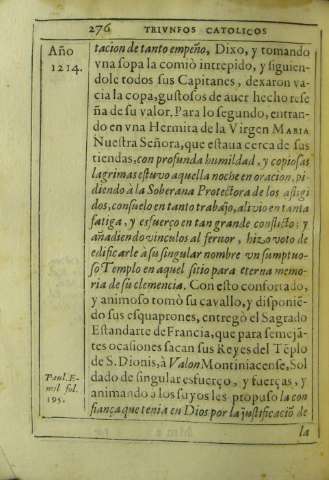 276 TRIVNFOS CATOLICOS
Año
1214.
tacion de tanto empeño, Dixo, y tomando
vna sopa la comiò intrepido, y siguien
dole todos sus Capitanes, dexaron va-
cia la copa, gustosos de auer hecho rese
ña de su valor. Para lo segundo, entran-
do en vna Hermita de la Virgen MARIA
Nuestra Señora, que estaua cerca de sus
tiendas, con profunda humildad, y copiosas
lagrimas estuvo aquella noche en oracion, pi-
diendo à la Soberana Protectora de los afligi
dos, consuelo en tanto trabajo, alivio en tanta
fatiga, y esfuerço en tan grande conflicto: y
añadiendo vinculos al fervor, hizo voto de
edificarle à su singular nombre vn sumptuo-
so Templo en aquel sitio para eterna memo-
ria de su clemencia. Con esto confortado,
y animoso tomò su cavallo, y disponiē-
do sus esquaprones, entregò el Sagrado
Estandarte de Francia, que para semejā-
tes ocasiones sacan sus Reyes del Tēplo
de S. Dionis, à Valon Montiniacense, Sol
dado de singular esfuerço, y fuerças, y
animando a los suyos les propuso la con
fiança que tenia en Dios por la justificaciō de
Paul. E-
mil fol.
195.
la